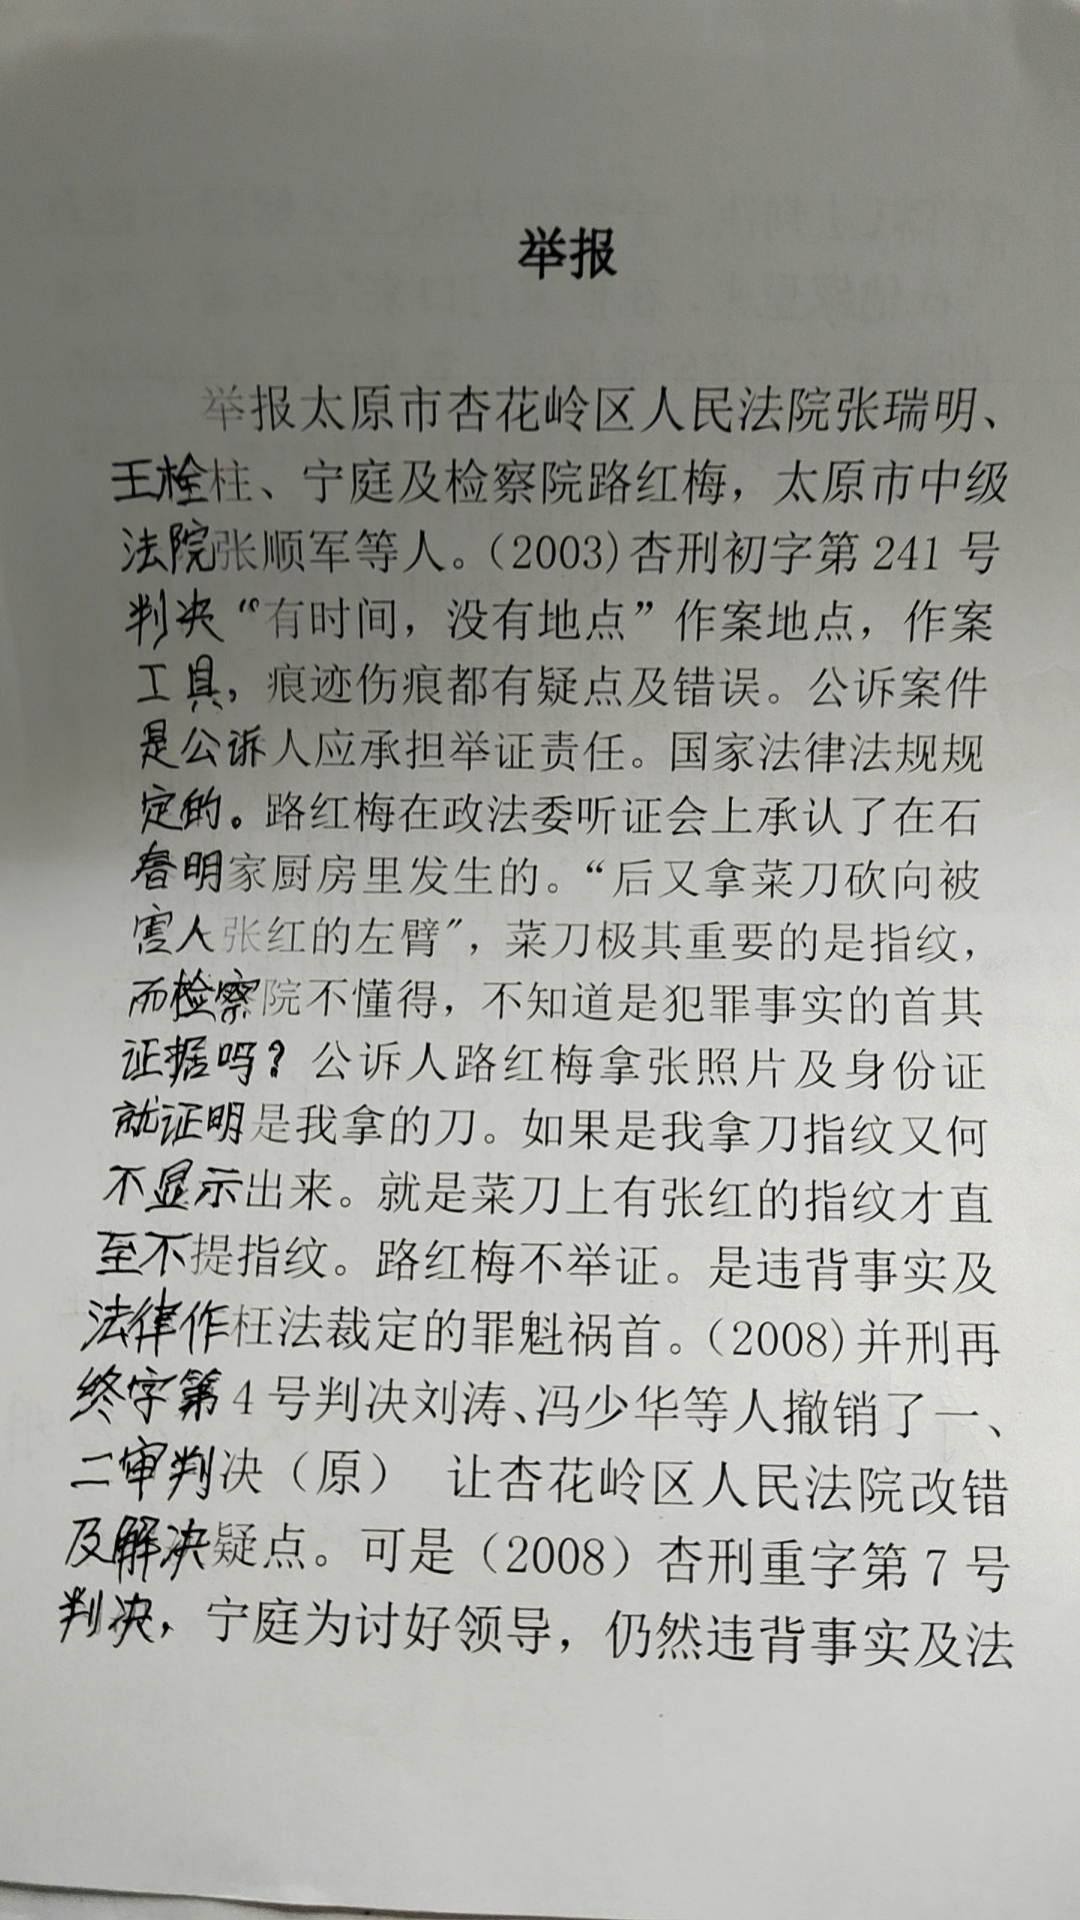 举报
举报太原市杏花岭区人民法院张瑞明、
王栓柱、宁庭及检察院路红梅，太原市中级
法院张顺军等人。(2003)杏刑初字第 241 号
判决“有时间，没有地点”作案地点，作案
工具，痕迹伤痕都有疑点及错误。公诉案件
是公诉人应承担举证责任。国家法律法规规
定的。路红梅在政法委听证会上承认了在石
春明家厨房里发生的。“后又拿菜刀砍向被
害人张红的左臂”，菜刀极其重要的是指纹，
而检察院不懂得，不知道是犯罪事实的首其
证据吗？公诉人路红梅拿张照片及身份证
就证明是我拿的刀。如果是我拿刀指纹又何
不显示出来。就是菜刀上有张红的指纹才直
至不提指纹。路红梅不举证。是违背事实及
法律作枉法裁定的罪魁祸首。(2008)并刑再
终字第 4 号判决刘涛、冯少华等人撤销了一、
二审判决（原） 让杏花岭区人民法院改错
及解决疑点。可是（2008）杏刑重字第 7 号
判决，宁庭为讨好领导，仍然违背事实及法